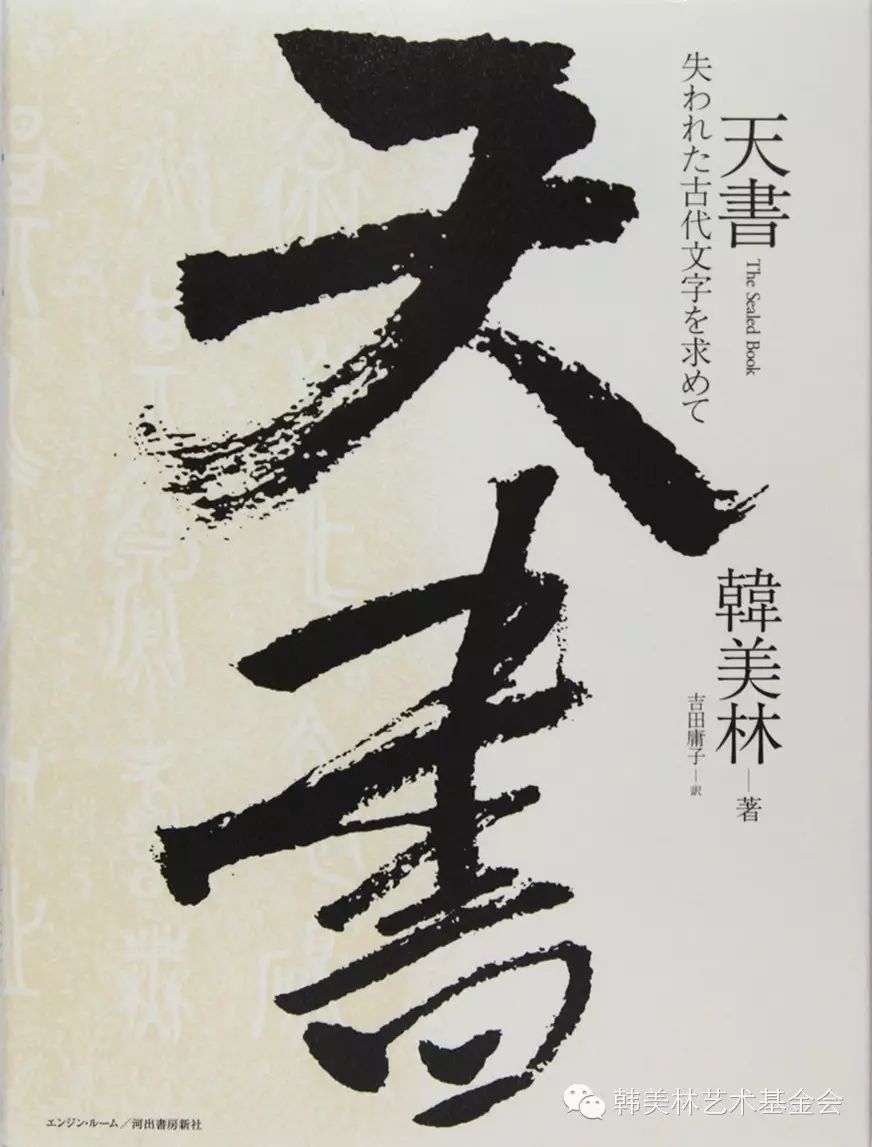 天書
失われた古代文字を求めて
天書
The Sealed Book
韓美林―著
吉田庸子―訳
エンジン・ルーム／河出書房新社
韩美林艺术基金会